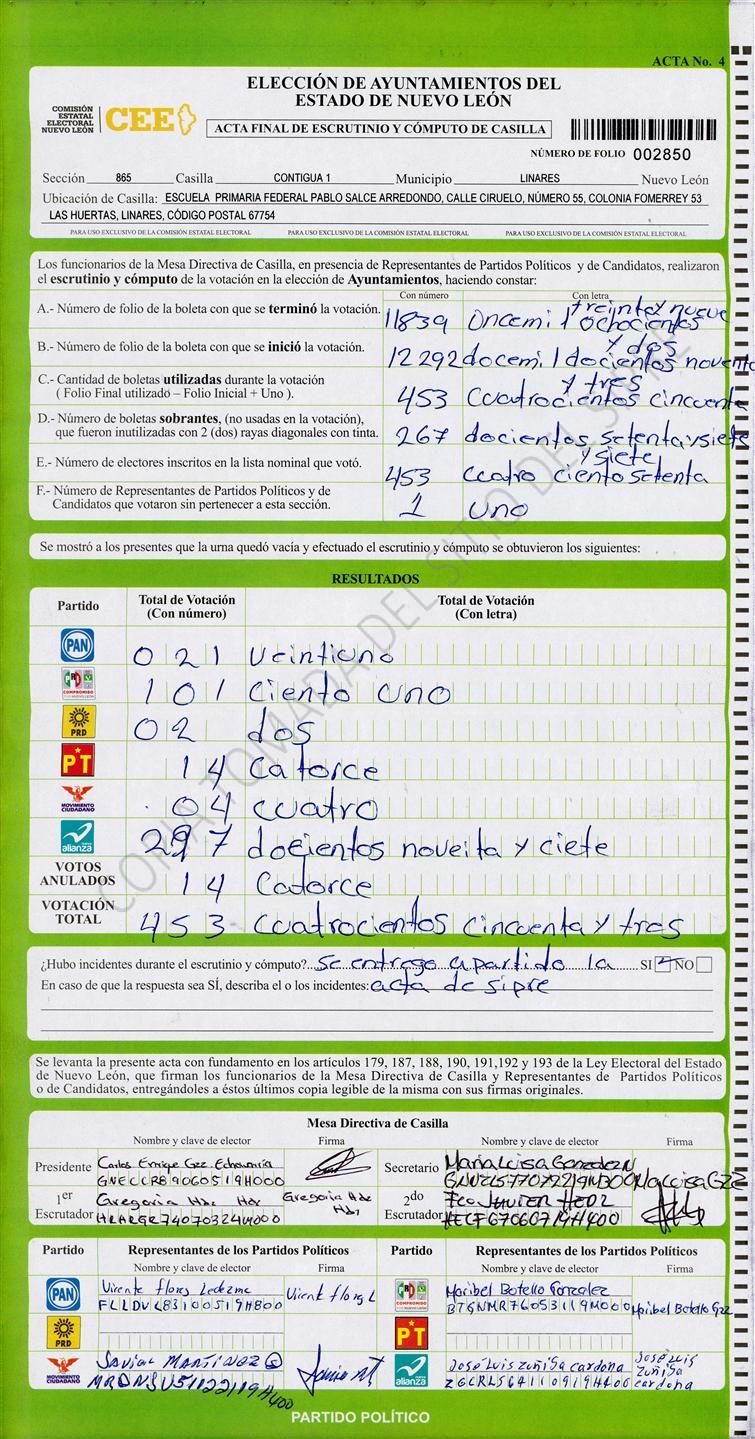 ACTA No. 4
ELECCIÓN DE AYUNTAMIENTOS DEL
ESTADO DE NUEVO LEÓN
COMISIÓN
ESTATAL
ELECTORAL
NUEVO LEÓN
CEE
ACTA FINAL DE ESCRUTINIO Y CÓMPUTO DE CASILLA
NÚMERO DE FOLIO 002850
Sección 865 Casilla CONTIGUA 1 Municipio LINARES Nuevo León
Ubicación de Casilla: ESCUELA PRIMARIA FEDERAL PABLO SALCE ARREDONDO, CALLE CIRUELO, NÚMERO 55, COLONIA FOMERREY 53
LAS HUERTAS, LINARES, CÓDIGO POSTAL 67754
PARA USO EXCLUSIVO DE LA COMISIÓN ESTATAL ELECTORAL PARA USO EXCLUSIVO DE LA COMISIÓN ESTATAL ELECTORAL PARA USO EXCLUSIVO DE LA COMISIÓN ESTATAL ELECTORAL
Los funcionarios de la Mesa Directiva de Casilla, en presencia de Representantes de Partidos Políticos y de Candidatos, realizaron
el escrutinio y cómputo de la votación en la elección de Ayuntamientos, haciendo constar:
Con número Con letra
A.- Número de folio de la boleta con que se terminó la votación. 11839 Oncemil ochocientos treinta y nueve
B.- Número de folio de la boleta con que se inició la votación. 12292 docemil docientos noventa y dos
C.- Cantidad de boletas utilizadas durante la votación
( Folio Final utilizado – Folio Inicial + Uno ). 453 Cuatrocientos cincuenta y tres
D.- Número de boletas sobrantes, (no usadas en la votación),
que fueron inutilizadas con 2 (dos) rayas diagonales con tinta. 267 docientos setenta y siete
E.- Número de electores inscritos en la lista nominal que votó. 453 cuatro ciento setenta y siete
F.- Número de Representantes de Partidos Políticos y de
Candidatos que votaron sin pertenecer a esta sección. 1 uno
Se mostró a los presentes que la urna quedó vacía y efectuado el escrutinio y cómputo se obtuvieron los siguientes:
RESULTADOS
Partido Total de Votación (Con número) Total de Votación (Con letra)
PAN 021 veintiuno
PRD COMPROMISO 101 ciento uno
PRD 02 dos
PT 14 catorce
MOVIMIENTO CIUDADANO 04 cuatro
nueva alianza 297 docientos noveita y ciete
VOTOS ANULADOS 14 Catorce
VOTACIÓN TOTAL 453 cuatrocientos cincuenta y tres
¿Hubo incidentes durante el escrutinio y cómputo? se entrego a partido la SI NO
En caso de que la respuesta sea SÍ, describa el o los incidentes: acta de sipre
Se levanta la presente acta con fundamento en los artículos 179, 187, 188, 190, 191,192 y 193 de la Ley Electoral del Estado
de Nuevo León, que firman los funcionarios de la Mesa Directiva de Casilla y Representantes de Partidos Políticos
o de Candidatos, entregándoles a éstos últimos copia legible de la misma con sus firmas originales.
Mesa Directiva de Casilla
Nombre y clave de elector Firma Nombre y clave de elector Firma
Presidente Carlos Enrique Gzz Echavarría
GNECCR89060519H000
Secretario Maria Luisa
Ma Luisa Gzz
1er Escrutador Gregoria Hdz Hdz
HRHRGR74070324M000
Gregoria Hdz Hdz
2do Escrutador Fco Javier HEDZ
Partido Representantes de los Partidos Políticos Partido Representantes de los Partidos Políticos
Nombre y clave de elector Firma Nombre y clave de elector Firma
PAN Vicente flores Ledezma
FLLDVC83100519H800
Vicent flores L
COMPROMISO Maribel Botello Gonzalez
BTGNMR76053119M000
Maribel Botello Gzz
PRD
PT
MOVIMIENTO CIUDADANO Javier MARTINEZ G
MRDNSV51122119H400
nueva alianza José Luis zuñiga cardona
ZGCRLS64110919H400
José Luis zuñiga cardona
PARTIDO POLÍTICO
COPIA TOMADA DEL SITIO DEL SIPRE